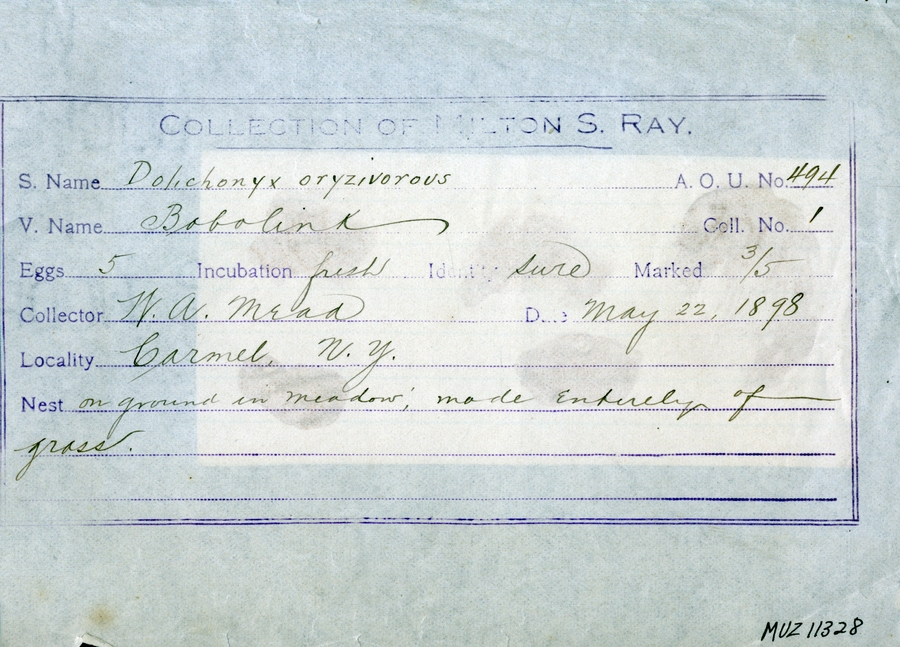 COLLECTION OF MILTON S. RAY.
S. Name Dolichonyx oryzivorous A. O. U. No. 494
V. Name Bobolink Coll. No. 1
Eggs 5 Incubation fresh Identity sure Marked 3/5
Collector W. A. Mead Date May 22, 1898
Locality Carmel, N. Y.
Nest on ground in meadow; made entirely of
grass.
MUZ 11328